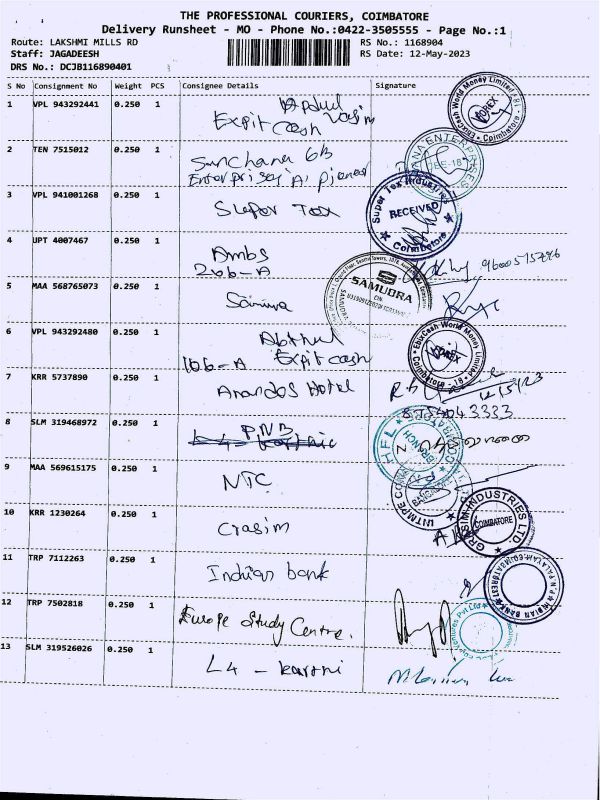 THE PROFESSIONAL COURIERS, COIMBATORE
Delivery Runsheet - MO - Phone No.:0422-3505555 - Page No.:1
Route: LAKSHMI MILLS RD
RS No.: 1168904
Staff: JAGADEESH
RS Date: 12-May-2023
DRS No.: DCJB116890401
S No Consignment No Weight PCS Consignee Details Signature
1 VPL 943292441 0.250 1
Expit cash
2 TEN 7515012 0.250 1
Enterprises
3 VPL 941001268 0.250 1
Super Tex
Super Tex Industries
RECEIVED
Coimbatore
4 UPT 4007467 0.250 1
Ambs
206-A
9600515746
5 MAA 568765073 0.250 1
SAMUDRA
6 VPL 943292480 0.250 1
Abthul
166-A Expit cash
EbixCash World Money Limited
7 KRR 5737890 0.250 1
Anandas Hotel
12/5/23
8 SLM 319468972 0.250 1
PNB
HFL
BRANCH
9 MAA 569615175 0.250 1
NTC
10 KRR 1230264 0.250 1
Grasim
GRASIM INDUSTRIES LTD.
COIMBATORE
11 TRP 7112263 0.250 1
Indian bank
INDIAN BANK
12 TRP 7502818 0.250 1
Europe Study Centre.
13 SLM 319526026 0.250 1
L4 - karthi